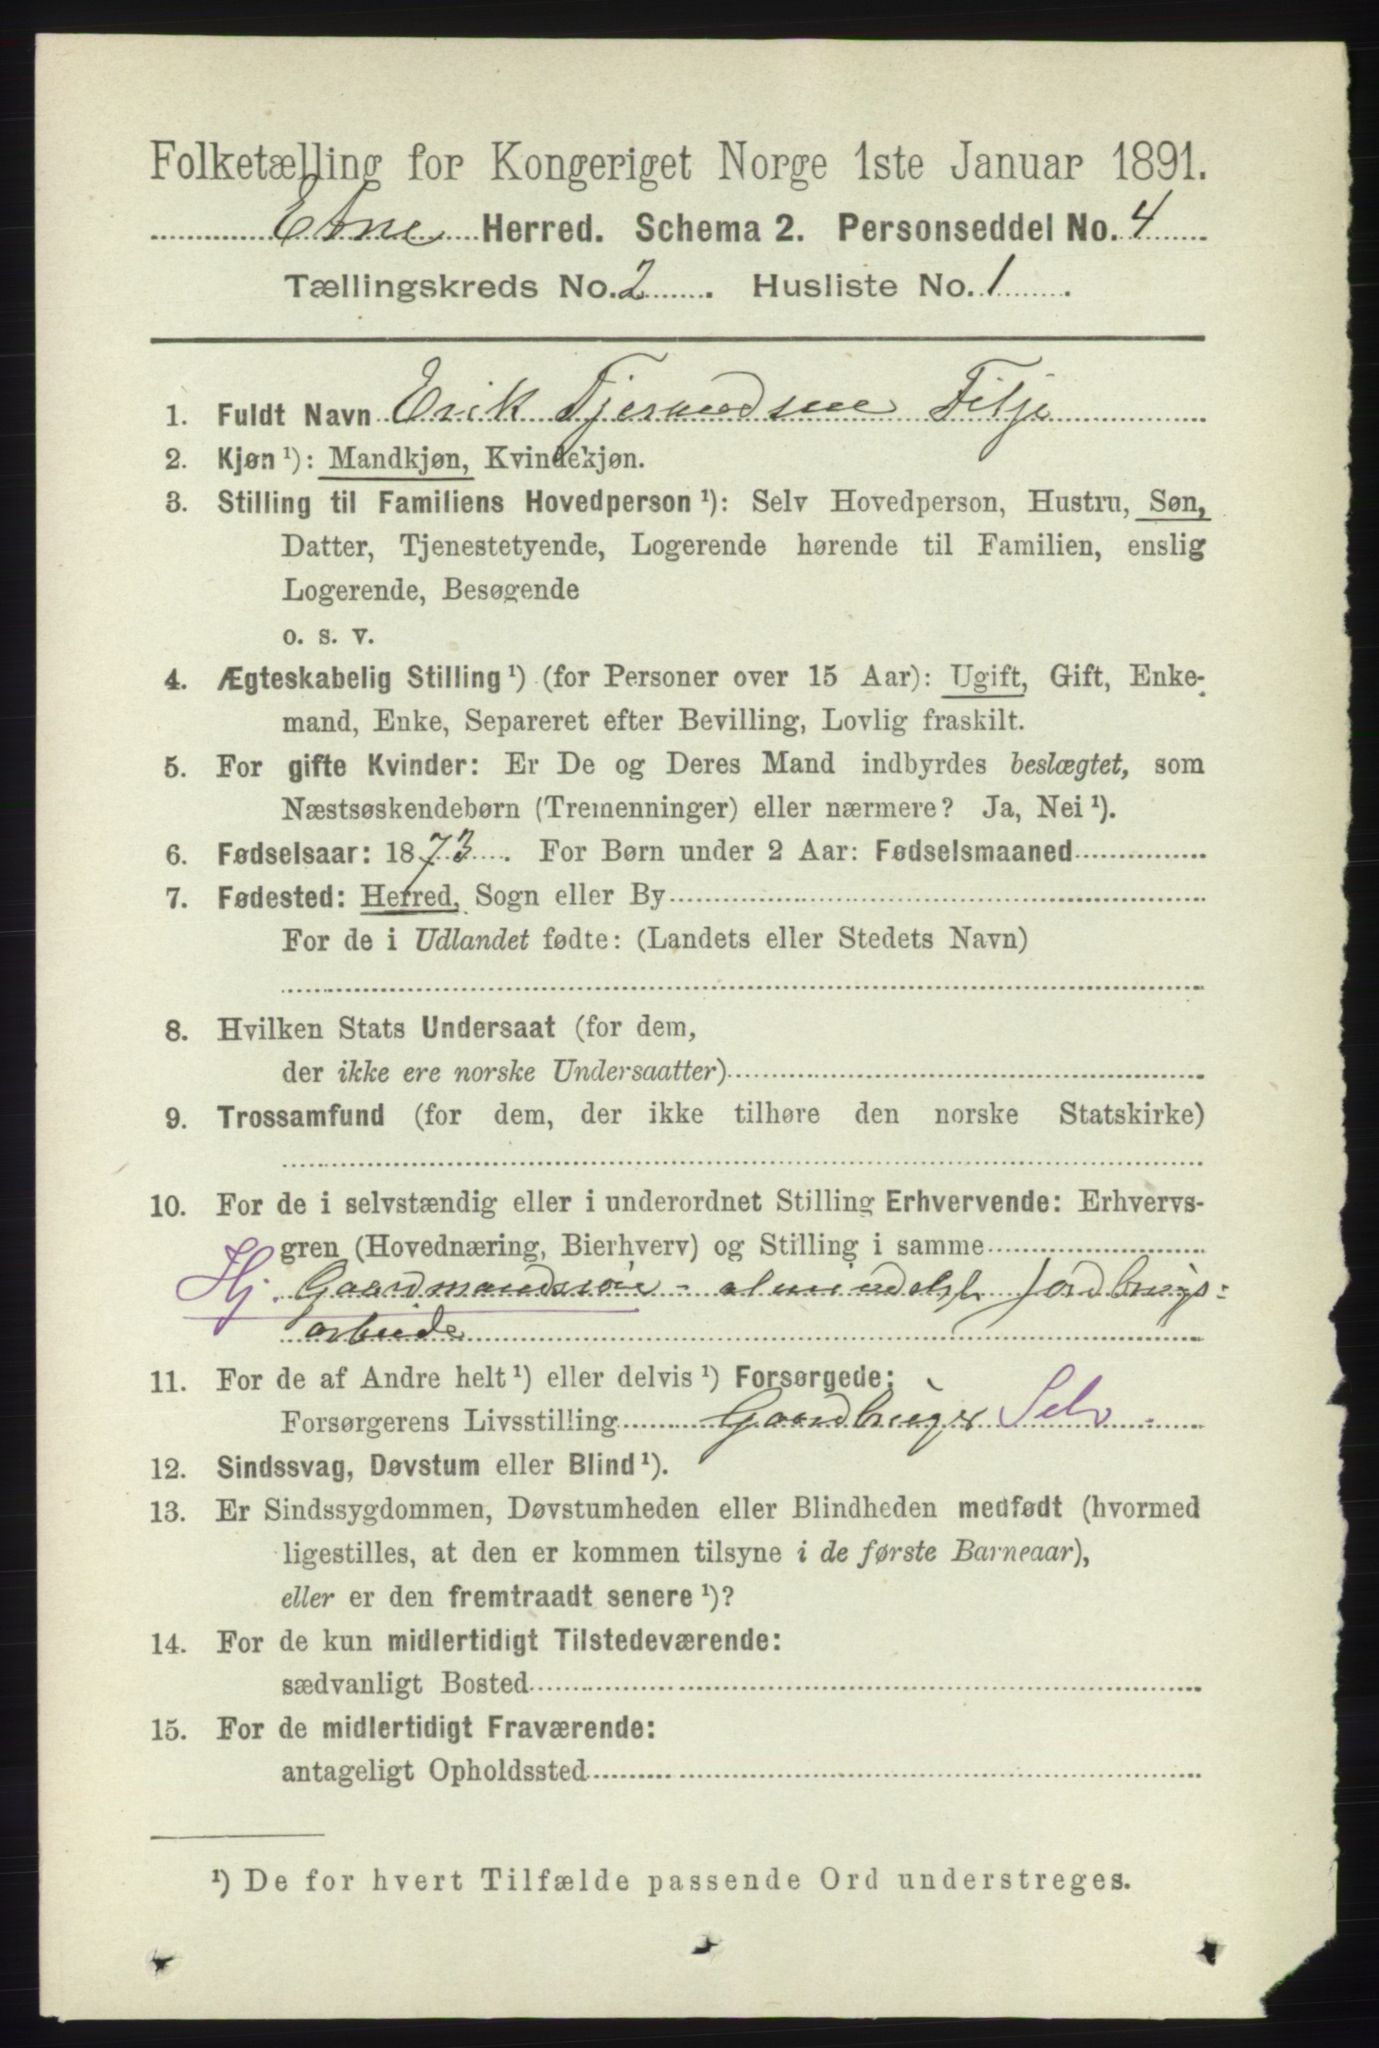 Folketælling for Kongeriget Norge 1ste Januar 1891.
Etne Herred. Schema 2. Personseddel No. 4
Tællingskreds No. 2. Husliste No. 1.
1. Fuldt Navn Erik Tjerandsen Filje
2. Kjøn ¹): Mandkjøn, Kvindekjøn.
3. Stilling til Familiens Hovedperson ¹): Selv Hovedperson, Hustru, Søn,
Datter, Tjenestetyende, Logerende hørende til Familien, enslig
Logerende, Besøgende
o. s. v.
4. Ægteskabelig Stilling ¹) (for Personer over 15 Aar): Ugift, Gift, Enke-
mand, Enke, Separeret efter Bevilling, Lovlig fraskilt.
5. For gifte Kvinder: Er De og Deres Mand indbyrdes beslægtet, som
Næstsøskendebørn (Tremenninger) eller nærmere? Ja, Nei ¹).
6. Fødselsaar: 1873. For Børn under 2 Aar: Fødselsmaaned
7. Fødested: Herred, Sogn eller By
For de i Udlandet fødte: (Landets eller Stedets Navn)
8. Hvilken Stats Undersaat (for dem,
der ikke ere norske Undersaatter)
9. Trossamfund (for dem, der ikke tilhøre den norske Statskirke)
10. For de i selvstændig eller i underordnet Stilling Erhvervende: Erhvervs-
gren (Hovednæring, Bierhverv) og Stilling i samme
Hj. Gaardmandssøn - almindelig Jordbrugs-
arbeide
11. For de af Andre helt ¹) eller delvis ¹) Forsørgede:
Forsørgerens Livsstilling Gaardbruger Selv.
12. Sindssvag, Døvstum eller Blind ¹).
13. Er Sindssygdommen, Døvstumheden eller Blindheden medfødt (hvormed
ligestilles, at den er kommen tilsyne i de første Barneaar),
eller er den fremtraadt senere ¹)?
14. For de kun midlertidigt Tilstedeværende:
sædvanligt Bosted
15. For de midlertidigt Fraværende:
antageligt Opholdssted
¹) De for hvert Tilfælde passende Ord understreges.